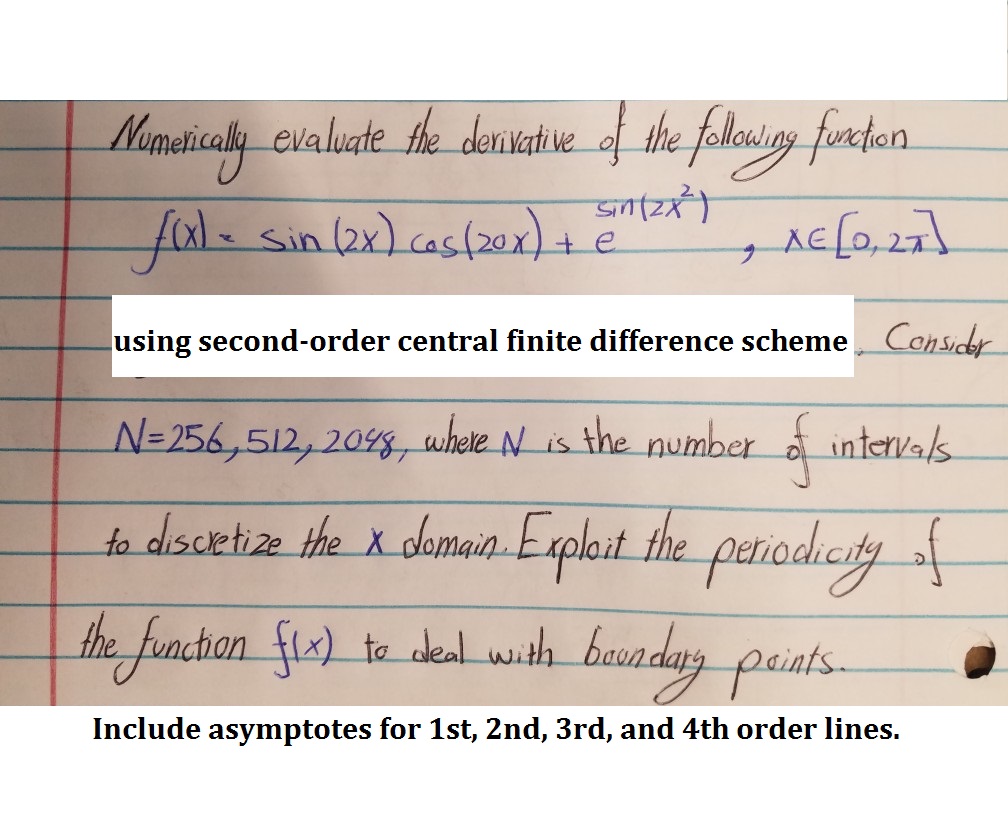 Numerically evaluate the derivative of the following function
f(x) = sin(2x) cos(20x) + e^{sin(2x²)}, x∈[0, 2π]
using second-order central finite difference scheme. Consider
N=256, 512, 2048, where N is the number of intervals
to discretize the x domain. Exploit the periodicity of
the function f(x) to deal with boundary points.
Include asymptotes for 1st, 2nd, 3rd, and 4th order lines.